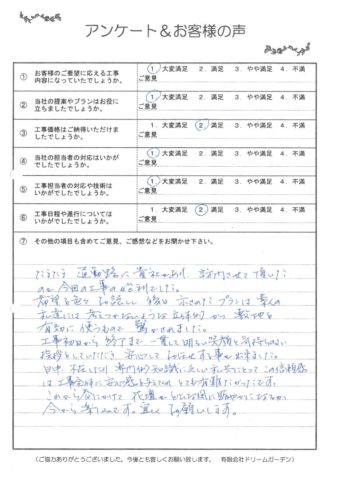 アンケート＆お客様の声
① お客様のご要望に応える工事
内容になっていたでしょうか。
1. 大変満足 2. 満足 3. やや満足 4. 不満
ご意見
② 当社の提案やプランはお役に
立ちましたでしょうか。
1. 大変満足 2. 満足 3. やや満足 4. 不満
ご意見
③ 工事価格はご納得いただけま
したでしょうか。
1. 大変満足 2. 満足 3. やや満足 4. 不満
ご意見
④ 当社の担当者の対応はいかが
でしたでしょうか。
1. 大変満足 2. 満足 3. やや満足 4. 不満
ご意見
⑤ 工事担当者の対応や技術は
いかがでしたでしょうか。
1. 大変満足 2. 満足 3. やや満足 4. 不満
ご意見
⑥ 工事日程や進行については
いかがでしたでしょうか。
1. 大変満足 2. 満足 3. やや満足 4. 不満
ご意見
⑦ その他の項目も含めてご意見、ご感想などをお聞かせ下さい。
たまたま 通勤路に貴社があり、訪問させて頂いた
のが今回の工事の始まりでした。
希望を全て お話しし 後日 示されたプランは 素人の
私達には 考えつかないような 立体的かつ 敷地を
有効に使うもので 驚かされました。
工事初日から 終了まで 一貫して明るい笑顔と気持ちのいい
挨拶をしていただき 安心してお任せする事が出来ました。
日中 不在したり 専門的な知識に乏しい私共にとって この信頼感
は 工事全体に安心感を与えてくれ とても有難かったです。
これから春にかけて 花壇がどんな風に賑やかになるか
今から楽しみです。宜しくお願いします。
(ご協力ありがとうございました。今後とも宜しくお願い致します。 有限会社ドリームガーデン)